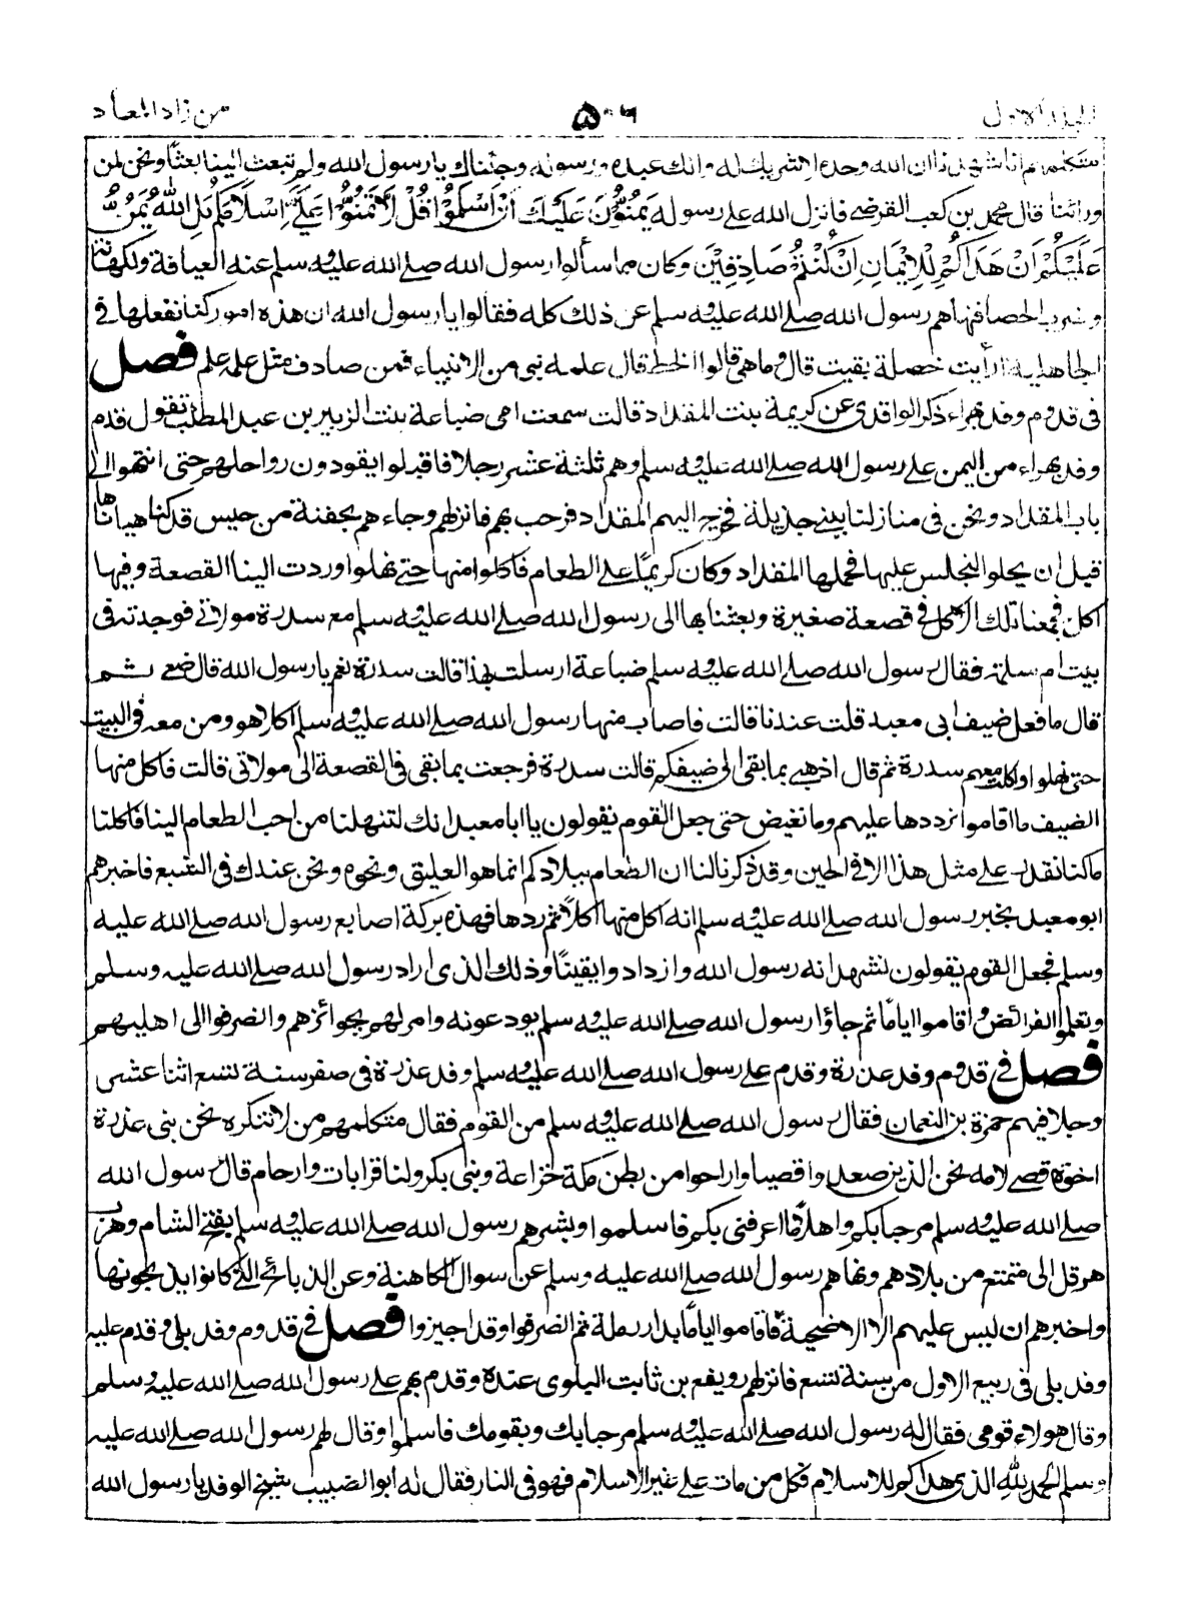 الجلد الاول ٥٠٦ من زاد المعاد
متكلمهم انا شهدنا ان الله وحده لا شريك له وانك عبده ورسوله وجئناك يا رسول الله ولم تبعث الينا بعثا ونحن لمن
ورائنا قال محمد بن كعب القرضي فانزل الله على رسوله يَمُنُّوْنَ عَلَيْكَ اَنْ اَسْلَمُوْا قُلْ لَا تَمُنُّوْا عَلَيَّ اِسْلَامَكُمْ بَلِ اللهُ يَمُنُّ
عَلَيْكُمْ اَنْ هَدَاكُمْ لِلْاِيْمَانِ اِنْ كُنْتُمْ صَادِقِيْنَ وكان مما سألوا رسول الله صلى الله عليه وسلم عنه العيافة والكهانة
وضرب الحصا فنهاهم رسول الله صلى الله عليه وسلم عن ذلك كله فقالوا يا رسول الله ان هذه امور كنا نفعلها في
الجاهلية ارأيت خصلة بقيت قال وما هي قالوا الخط قال علمه نبى من الانبياء فمن صادف مثل علمه علم فصل
فى قدوم وفد بهراء ذكر الواقدى عن كريمة بنت المقداد قالت سمعت امى ضباعة بنت الزبير بن عبد المطلب تقول قدم
وفد بهراء من اليمن على رسول الله صلى الله عليه وسلم وهم ثلثة عشر رجلا فاقبلوا يقودون رواحلهم حتى انتهوا الى
باب المقداد ونحن فى منازلنا ببنى جديلة فخرج اليهم المقداد فرحب بهم فانزلهم وجاءهم بجفنة من حيس قد كنا هيأناها
قبل ان يحلوا لنجلس عليها فحملها المقداد وكان كريمًا على الطعام فاكلوا منها حتى نهلوا وردت الينا القصعة وفيها
اكل فجمعنا تلك الاكل فى قصعة صغيرة وبعثنا بها الى رسول الله صلى الله عليه وسلم مع سدرة مولاتى فوجدته فى
بيت ام سلمة فقال رسول الله صلى الله عليه وسلم ضباعة ارسلت بهذا قالت سدرة نعم يا رسول الله قال ضعى ثم
قال ما فعل ضيف ابى معبد قلت عندنا قالت فاصاب منها رسول الله صلى الله عليه وسلم اكلا هو ومن معه فى البيت
حتى نهلوا واكلت معهم سدرة ثم قال اذهبى بما بقى الى ضيفكم قالت سدرة فرجعت بما بقى فى القصعة الى مولاتى قالت فاكل منها
الضيف ما اقاموا نرددها عليهم وما تغيض حتى جعل القوم يقولون يا ابا معبد انك لتنهلنا من احب الطعام الينا فاكلنا
ما كنا نقدر على مثل هذا الا فى الحين وقد ذكر لنا ان الطعام ببلادكم انما هو العليق ونحوه ونحن عندك فى الشبع فاخبرهم
ابو معبد بخبر رسول الله صلى الله عليه وسلم انه اكل منها اكلًا ثم ردها فهذه بركة اصابع رسول الله صلى الله عليه
وسلم فجعل القوم يقولون نشهد انه رسول الله وازدادوا يقينًا وذلك الذى اراد رسول الله صلى الله عليه وسلم
وتعلموا الفرائض واقاموا ايامًا ثم جاؤا رسول الله صلى الله عليه وسلم يودعونه وامر لهم بجوائزهم وانصرفوا الى اهليهم
فصل في قدوم وفد عذرة وقدم على رسول الله صلى الله عليه وسلم وفد عذرة فى صفر سنة تسع اثنا عشر
رجلا فيهم حمزة بن النعمان فقال رسول الله صلى الله عليه وسلم من القوم فقال متكلمهم من لا تنكره نحن بنى عذرة
اخوة قصى لامه نحن الذين عضدوا قصيا وازاحوا من بطن مكة خزاعة وبنى بكر ولنا قرابات وارحام قال رسول الله
صلى الله عليه وسلم مرحبا بكم واهلًا ما اعرفنى بكم فاسلموا وبشرهم رسول الله صلى الله عليه وسلم بفتح الشام وهرب
هرقل الى ممتنع من بلادهم ونهاهم رسول الله صلى الله عليه وسلم عن سوال الكاهنة وعن الذبائح التى كانوا يذبحونها
واخبرهم ان ليس عليهم الا الاضحية فاقاموا ايامًا بدار رملة ثم انصرفوا وقد اجيزوا فصل في قدوم وفد بلى وقدم عليه
وفد بلى فى ربيع الاول من سنة تسع فانزلهم رويفع بن ثابت البلوى عنده وقدم بهم على رسول الله صلى الله عليه وسلم
وقال هولاء قومى فقال له رسول الله صلى الله عليه وسلم مرحبا بك وبقومك فاسلموا وقال لهم رسول الله صلى الله عليه
وسلم الحمد لله الذى هداكم للاسلام فكل من مات على غير الاسلام فهو فى النار فقال له ابو الضبيب شيخ الوفد يا رسول الله